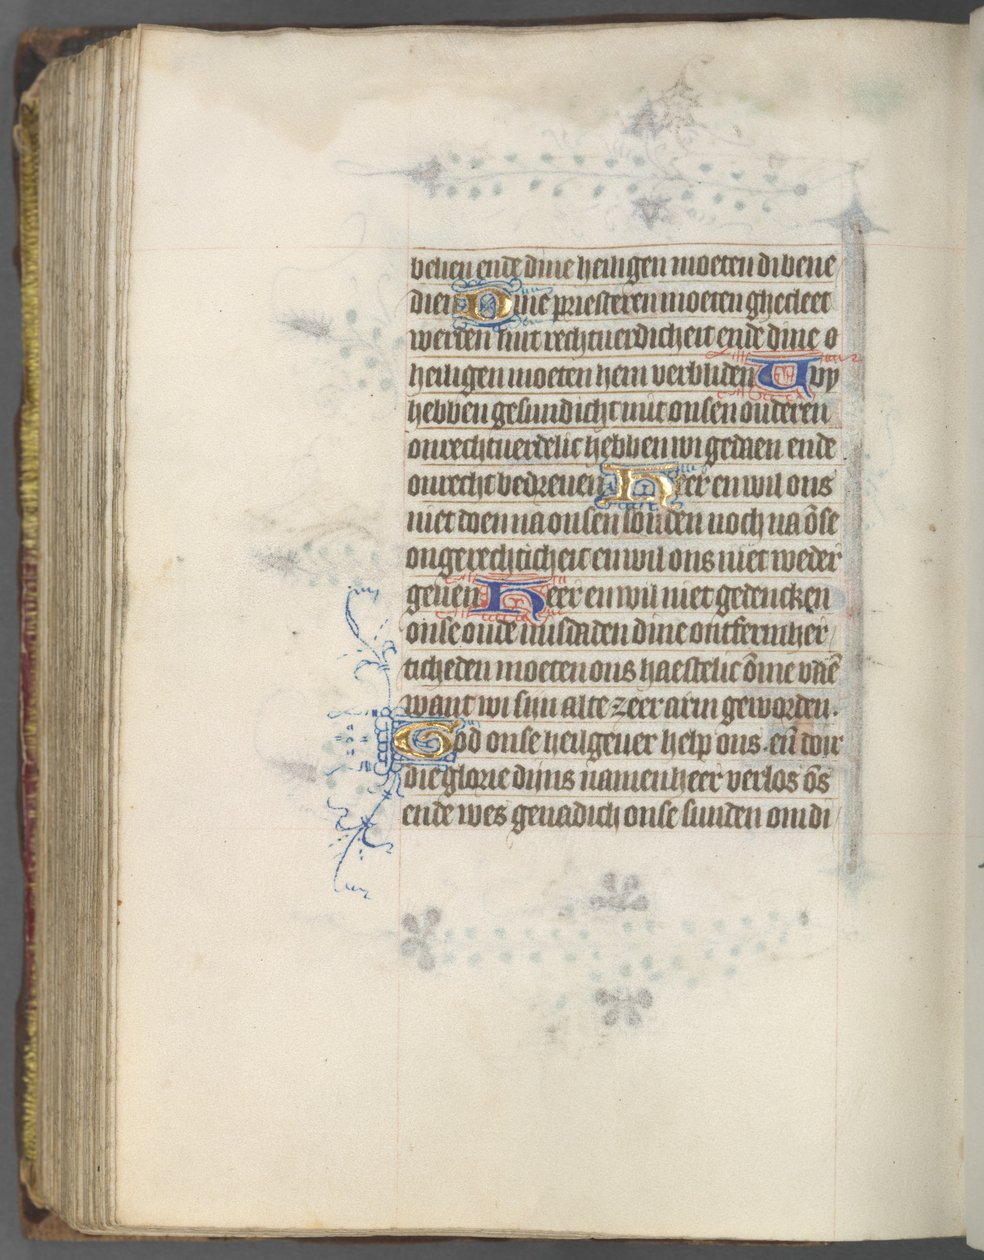 velien ende dine heiligen moeten di bene
dien Dine priesteren moeten ghecleet
werden mit rechtuerdicheit ende dine o
heiligen moeten hem verbliden Wy
hebben gesundicht mit onsen ouderen
onrechtuerdelic hebben wi gedaen ende
onrecht bedreuen Heer en wil ons
niet doen na onsen sonden noch na õse
ongerechticheit en wil ons niet weder
geuen Heer en wil niet gedencken
onse oude misdaden dine ontfermher
ticheden moeten ons haestelic õme vãẽ
want wi sijn alte zeer arm geworden.
God onse heilgeuer help ons. eñ doir
die glorie dijns namen heer verlos õs
ende wes genadich onse sunden om di